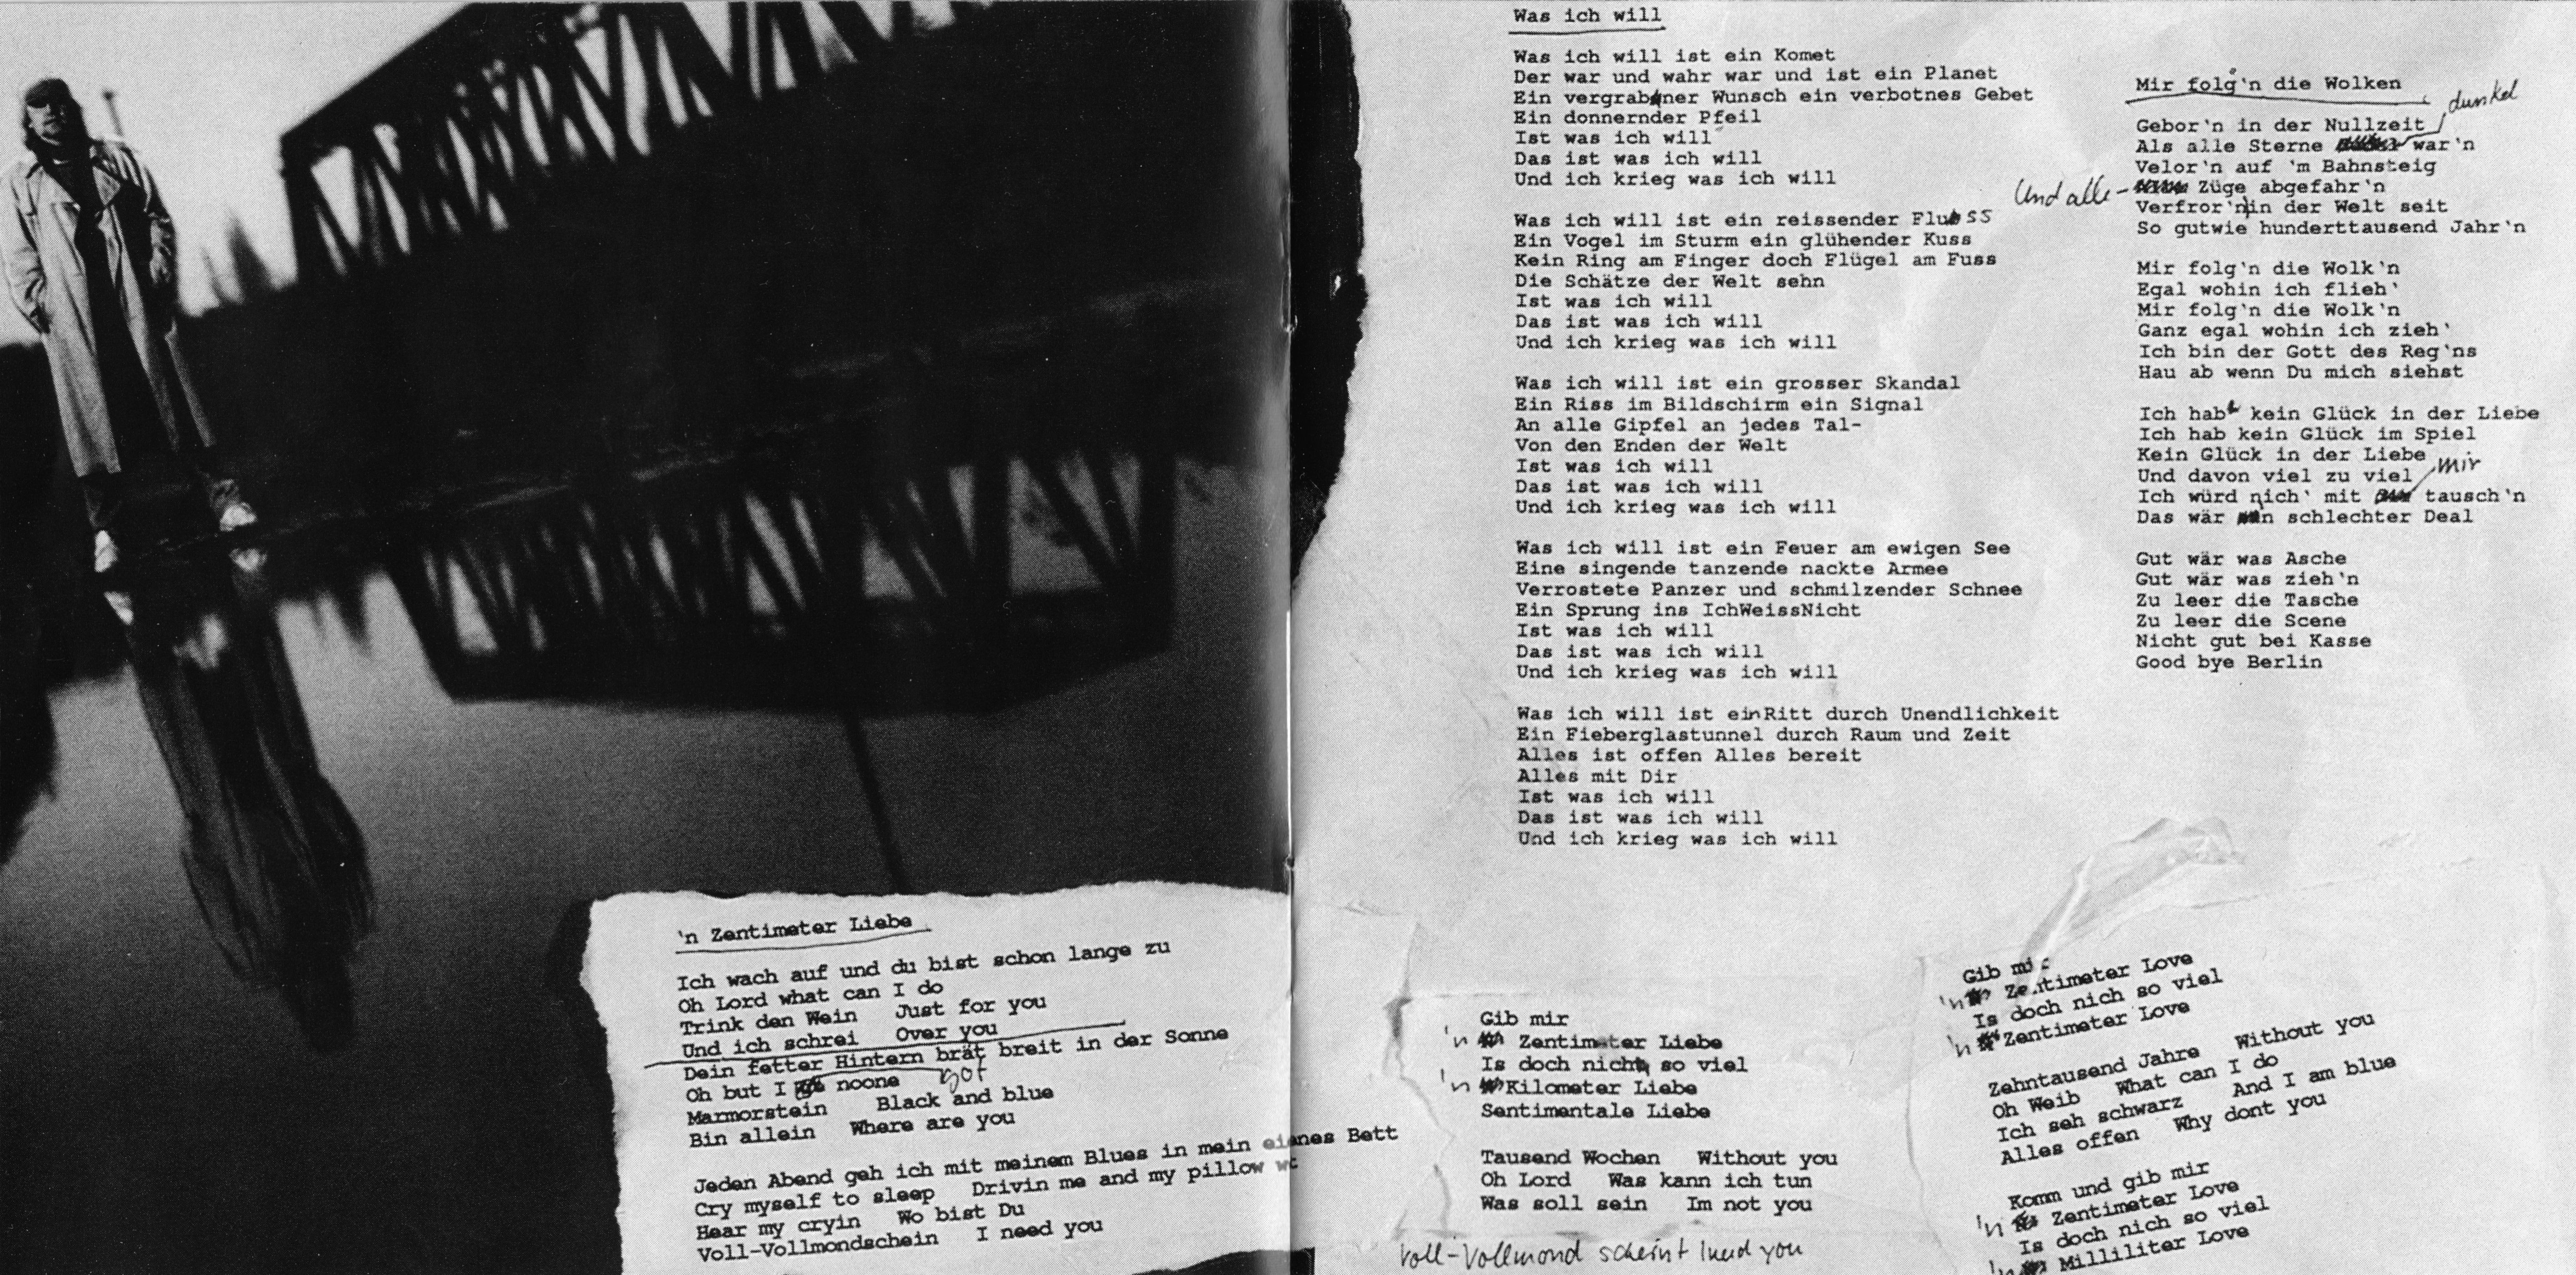 'n Zentimeter Liebe
Ich wach auf und du bist schon lange zu
Oh Lord what can I do
Trink den Wein Just for you
Und ich schrei Over you
Dein fetter Hintern brät breit in der Sonne
Oh but I got noone
Marmorstein Black and blue
Bin allein Where are you
Jeden Abend geh ich mit meinem Blues in mein einnes Bett
Cry myself to sleep Drivin me and my pillow
Hear my cryin Wo bist Du
Voll-Vollmondschein I need you
Was ich will
Was ich will ist ein Komet
Der war und wahr war und ist ein Planet
Ein vergrabner Wunsch ein verbotnes Gebet
Ein donnernder Pfeil
Ist was ich will
Das ist was ich will
Und ich krieg was ich will
Was ich will ist ein reissender Fluss
Ein Vogel im Sturm ein glühender Kuss
Kein Ring am Finger doch Flügel am Fuss
Die Schätze der Welt sehn
Ist was ich will
Das ist was ich will
Und ich krieg was ich will
Was ich will ist ein grosser Skandal
Ein Riss im Bildschirm ein Signal
An alle Gipfel an jedes Tal-
Von den Enden der Welt
Ist was ich will
Das ist was ich will
Und ich krieg was ich will
Was ich will ist ein Feuer am ewigen See
Eine singende tanzende nackte Armee
Verrostete Panzer und schmilzender Schnee
Ein Sprung ins IchWeissNicht
Ist was ich will
Das ist was ich will
Und ich krieg was ich will
Was ich will ist ein Ritt durch Unendlichkeit
Ein Fieberglastunnel durch Raum und Zeit
Alles ist offen Alles bereit
Alles mit Dir
Ist was ich will
Das ist was ich will
Und ich krieg was ich will
Mir folg'n die Wolken
Gebor'n in der Nullzeit
Als alle Sterne dunkel war'n
Velor'n auf 'm Bahnsteig
Und alle Züge abgefahr'n
Verfror'n in der Welt seit
So gutwie hunderttausend Jahr'n
Mir folg'n die Wolk'n
Egal wohin ich flieh'
Mir folg'n die Wolk'n
Ganz egal wohin ich zieh'
Ich bin der Gott des Reg'ns
Hau ab wenn Du mich siehst
Ich hab kein Glück in der Liebe
Ich hab kein Glück im Spiel
Kein Glück in der Liebe
Und davon viel zu viel
Ich würd nich' mit mir tausch'n
Das wär n schlechter Deal
Gut wär was Asche
Gut wär was zieh'n
Zu leer die Tasche
Zu leer die Scene
Nicht gut bei Kasse
Good bye Berlin
Gib mir
'n Zentimeter Liebe
Is doch nich so viel
'n Kilometer Liebe
Sentimentale Liebe
Tausend Wochen Without you
Oh Lord Was kann ich tun
Was soll sein Im not you
Voll-Vollmond scheint I need you
Gib mir
'n Zentimeter Love
Is doch nich so viel
'n Zentimeter Love
Zehntausend Jahre Without you
Oh Weib What can I do
Ich seh schwarz And I am blue
Alles offen Why dont you
Komm und gib mir
'n Zentimeter Love
Is doch nich so viel
'n Milliliter Love